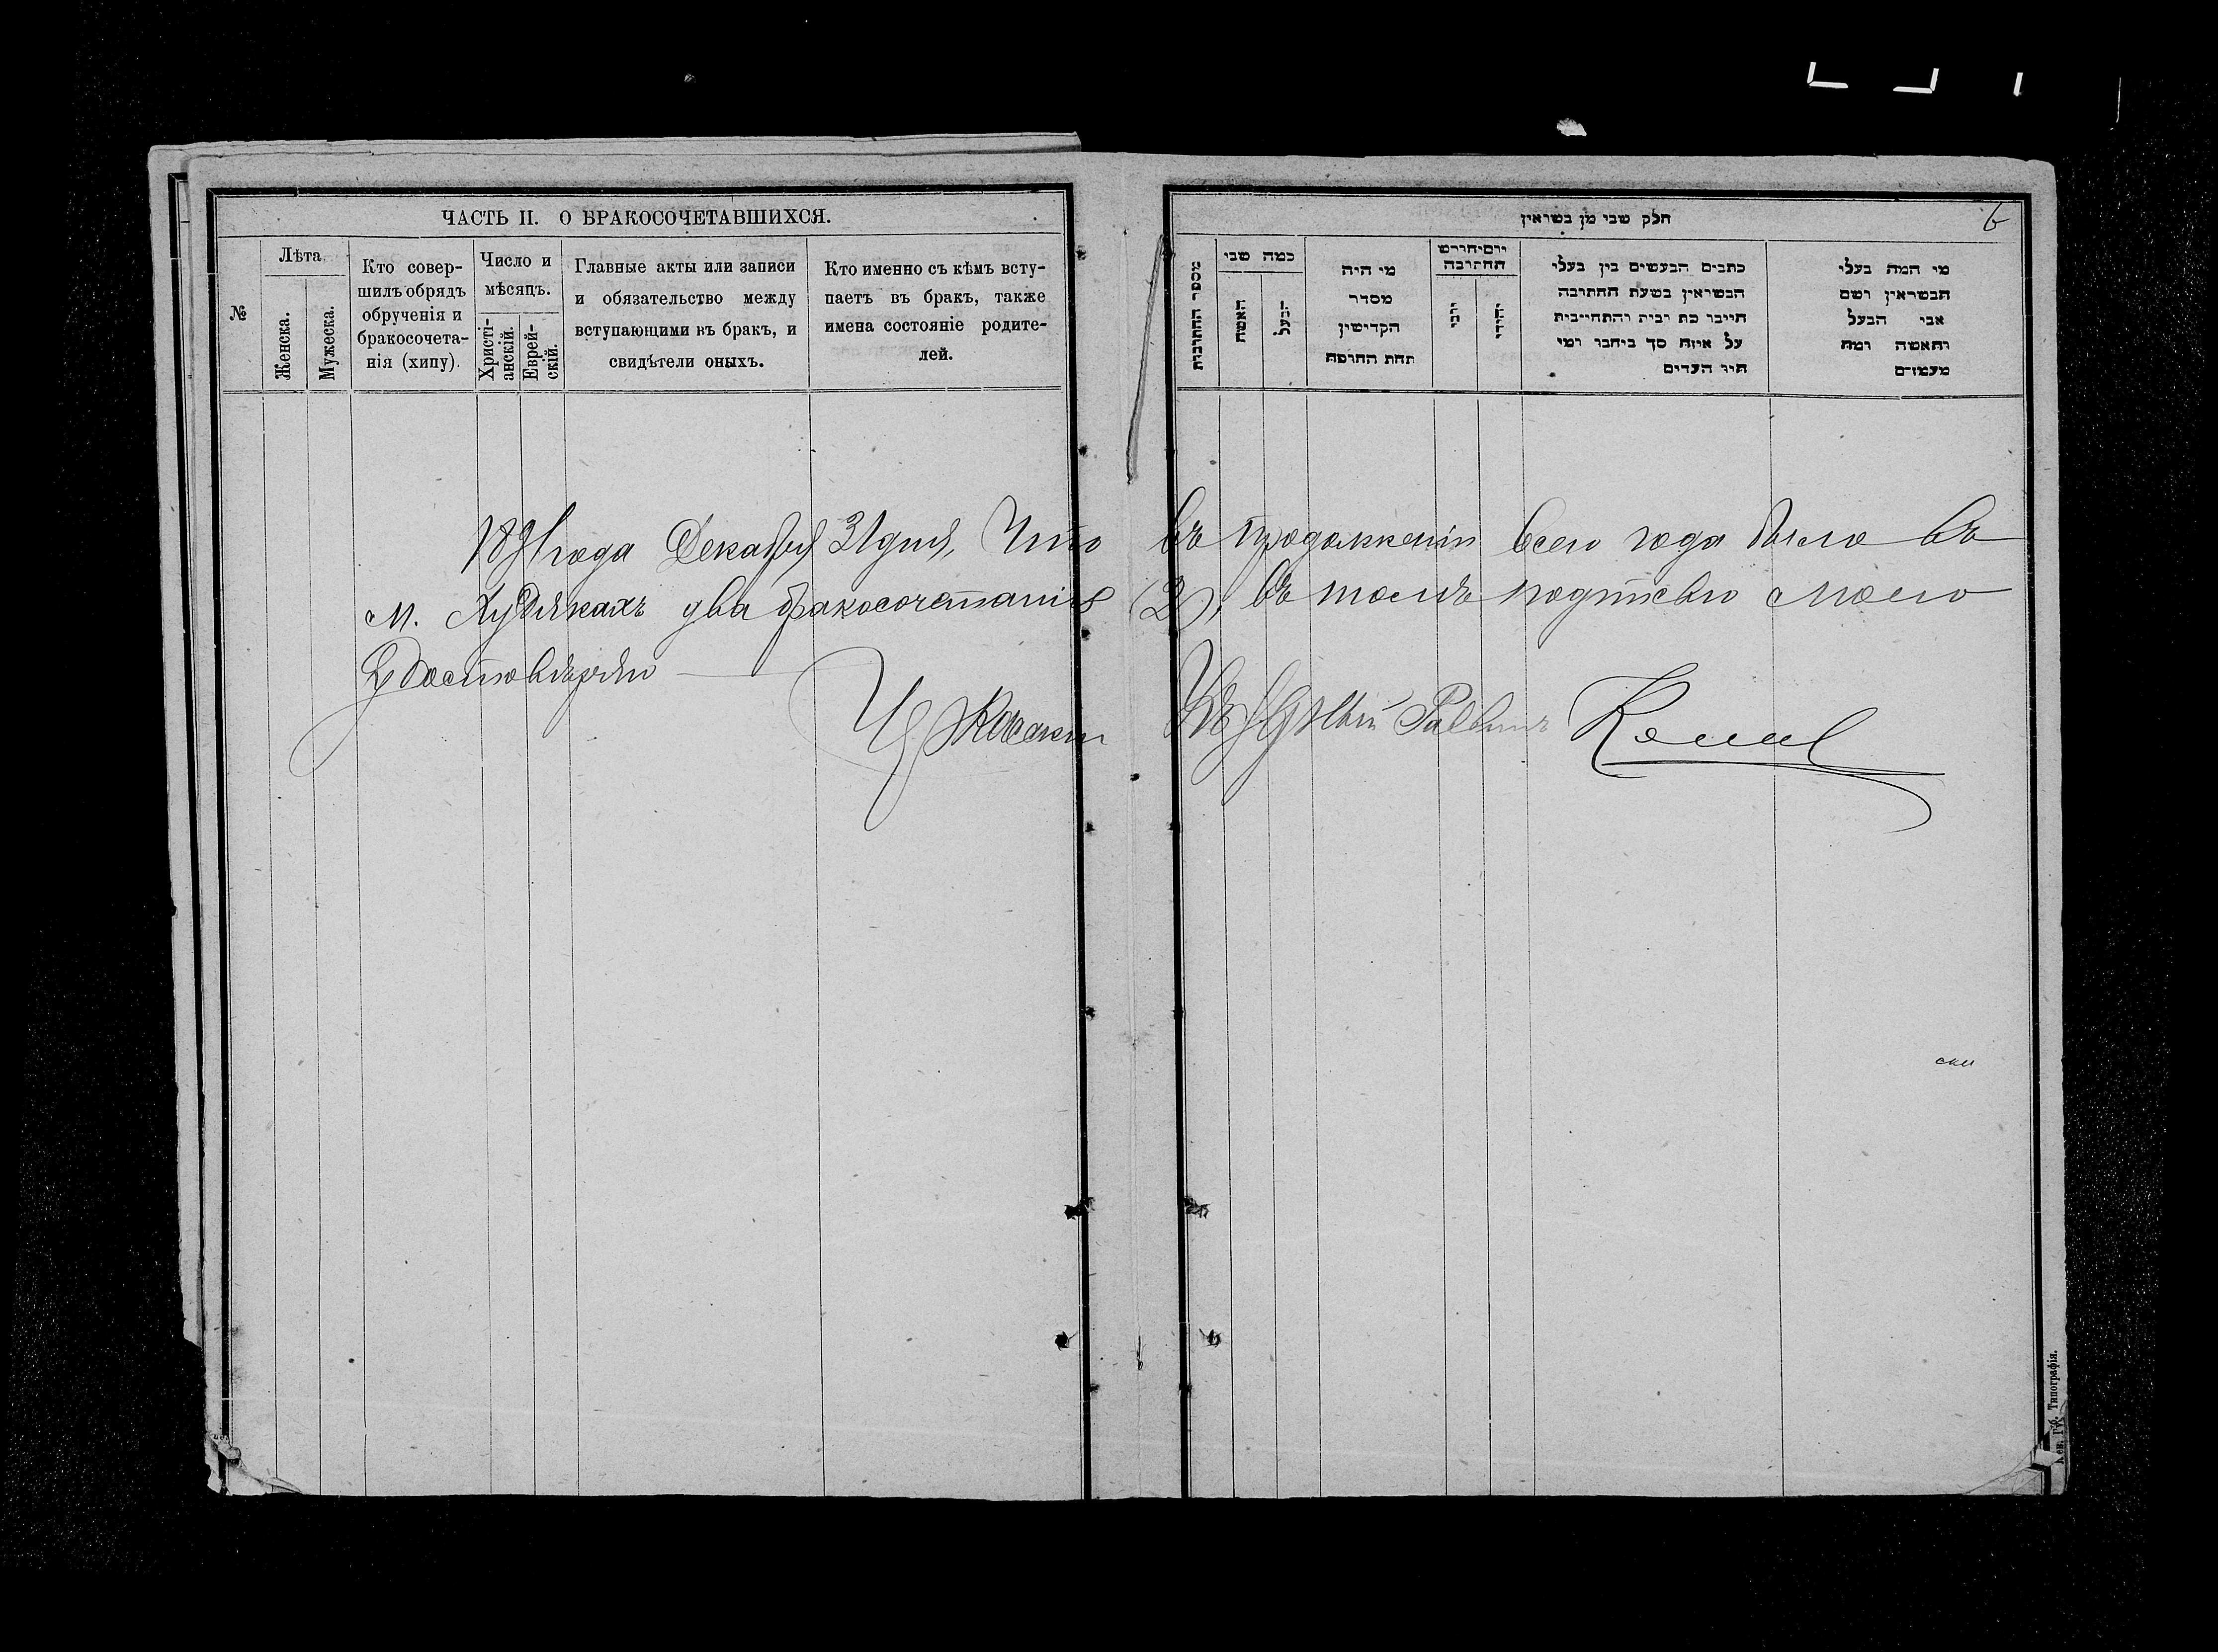 ЧАСТЬ II. О БРАКОСОЧЕТАВШИХСЯ.
№
Лѣта
Женска.
Мужеска.
Кто совер-
шилъ обрядъ
обрученія и
бракосочета-
нія (хипу).
Число и
мѣсяцъ.
Христі-
анскій.
Еврей-
скій.
Главные акты или записи
и обязательство между
вступающими въ бракъ, и
свидѣтели оныхъ.
Кто именно съ кѣмъ всту-
паетъ въ бракъ, также
имена состояніе родите-
лей.
חלק שבי מן בשראין
6
מספר החתובות
כמה שבי
האשה
הבעל
מי היה
מסדר
הקדישין
תחת החופה
יום וחורש
החתובה
יהודי
כתבים הבעשים בין בעלי
הבשראין בשעת החתובה
חייבו כת רבית והתחייבית
על איזה סך ביחבו ומי
היו העדים
מי המה בעלי
הבשראין ושם
אבי הבעל
והאשה ומה
מעמדם
1891 года Декабря 31 дня, Что въ продолженіи всего года было въ
м. Худякахъ два бракосочетанія (2), въ томъ подписью моею
Удостовѣряю
Уѣздный Раввинъ
ски
Кіев. Губ. Типографія.